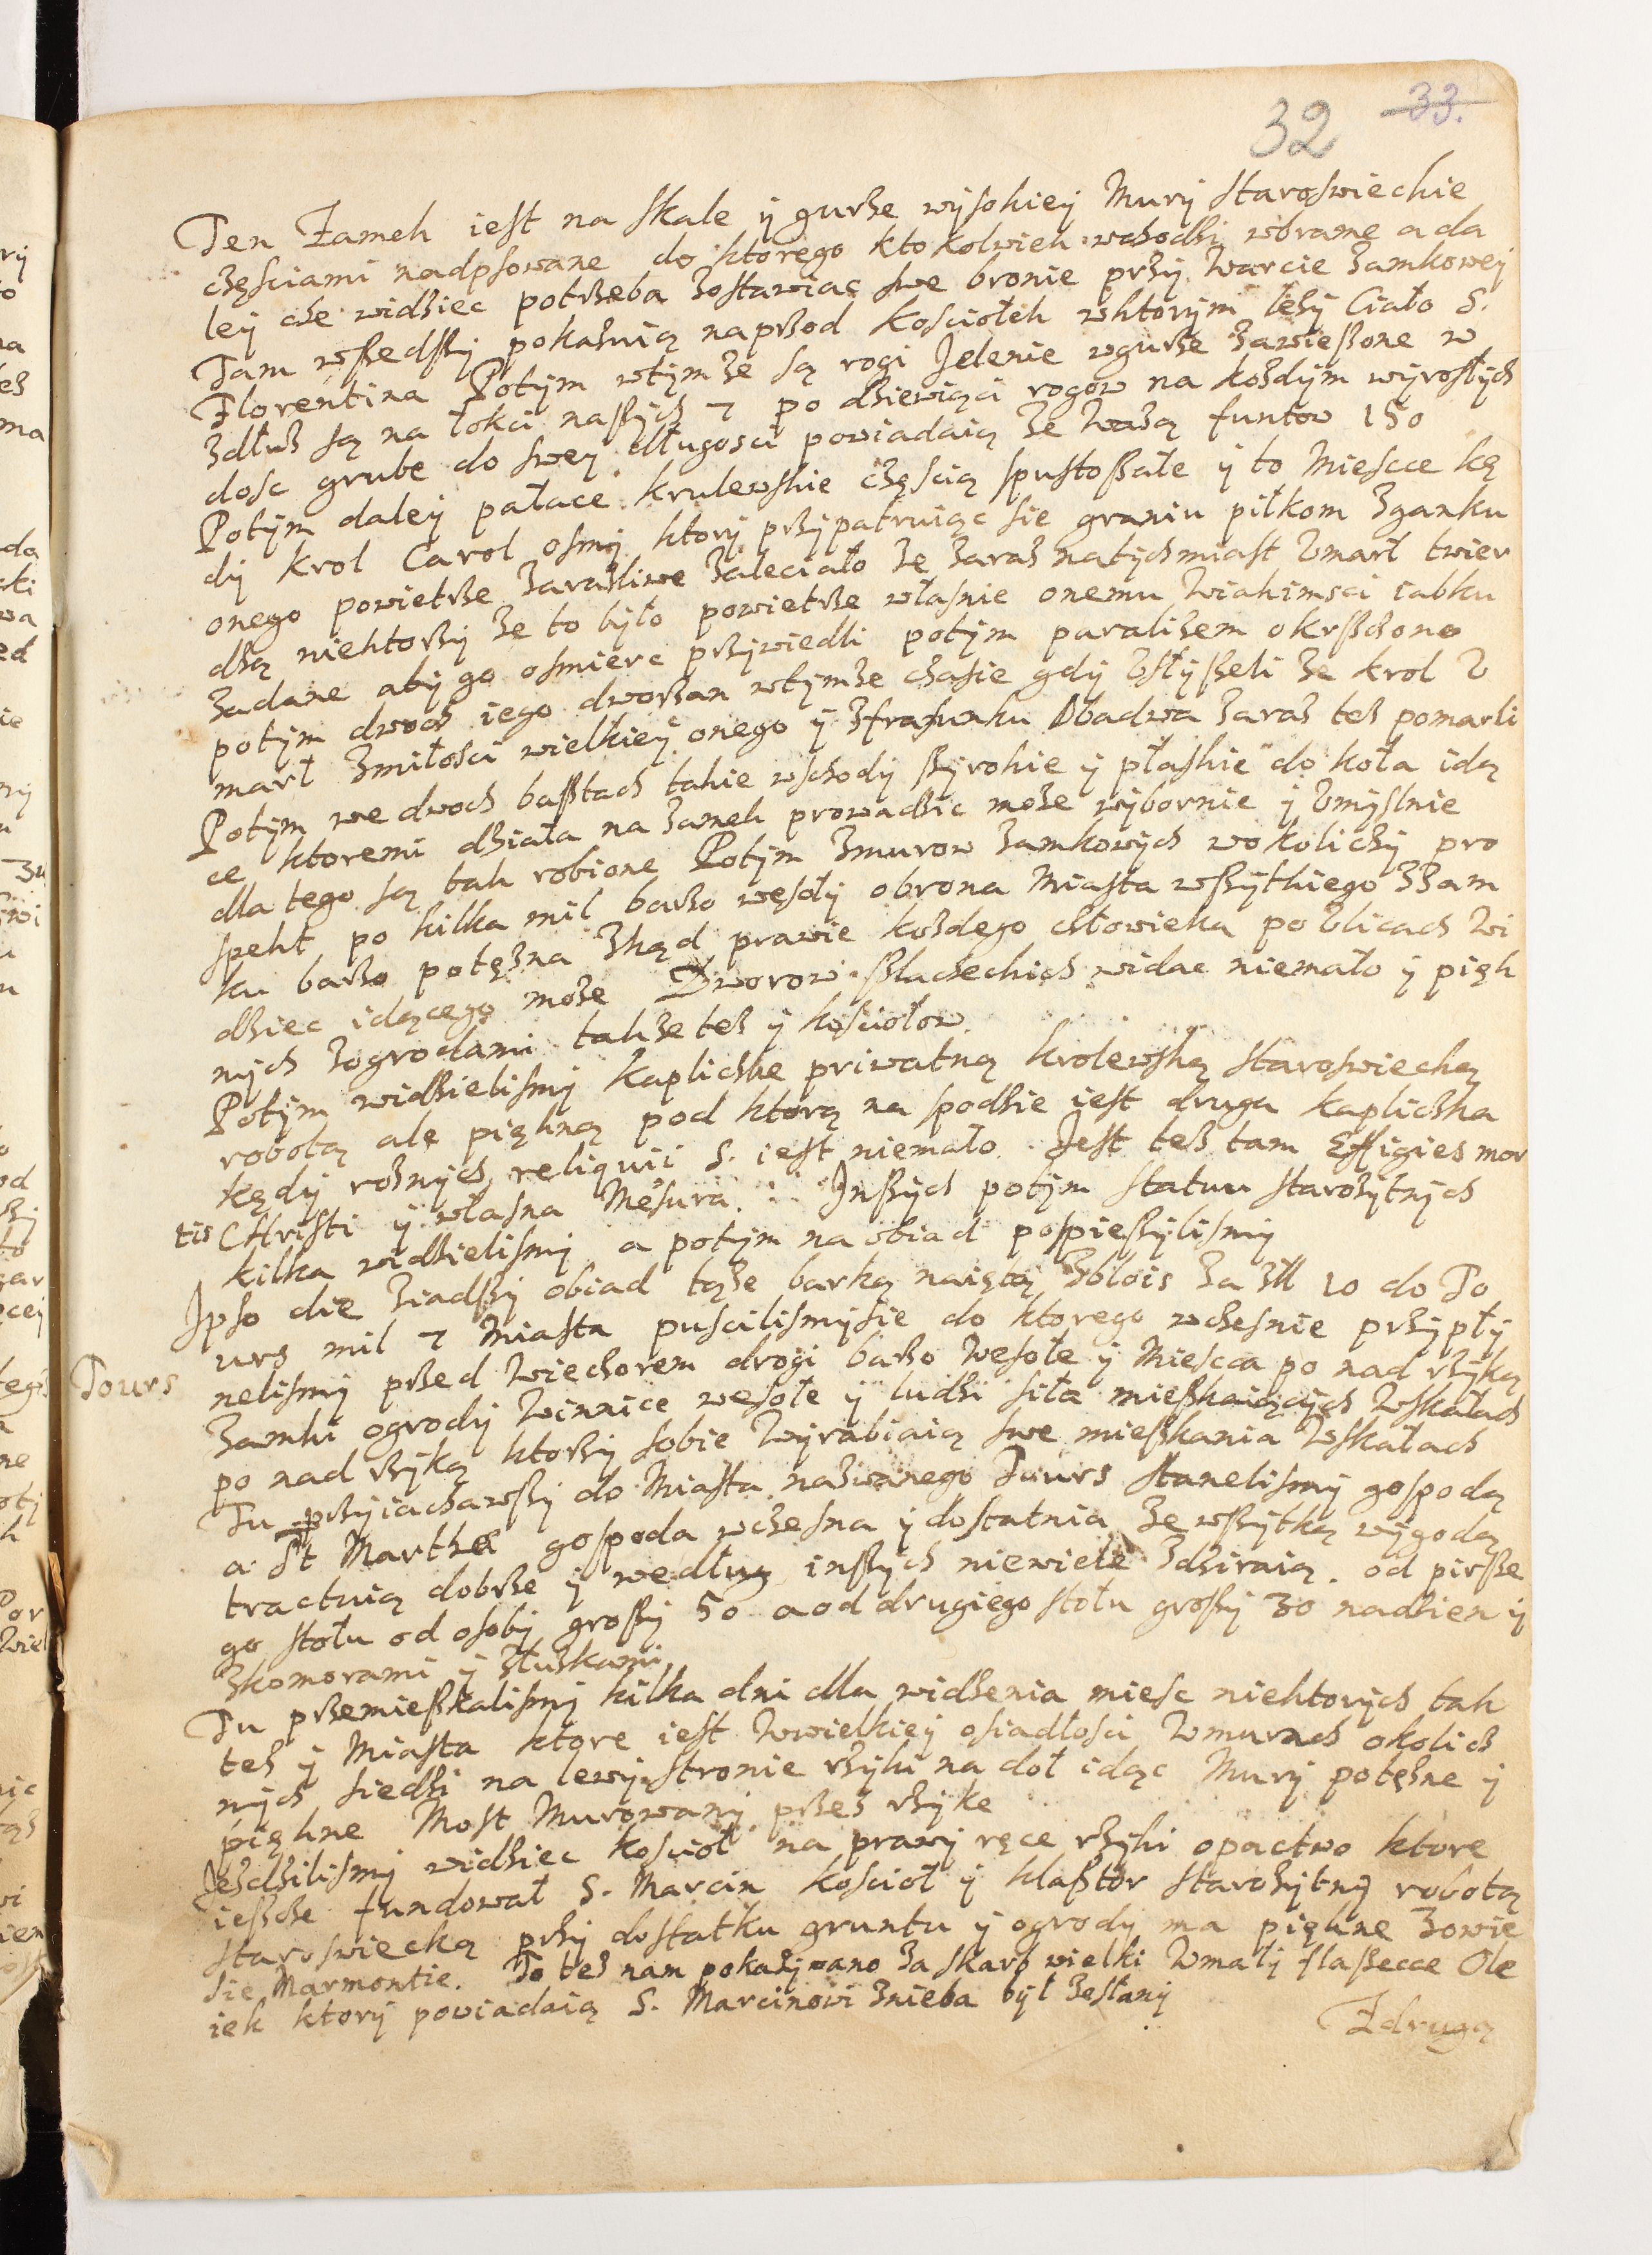 33.
32
Ten Zamek iest na skale y gurze wysokiey Mury staroswieckie
częsciami nadpsowane do ktorego ktokolwiek wchodzi wbrame a da
ley chce widziec potrzeba zostawiac swe bronie przy warcie zamkowey
Tam wszedszy pokazuią naprzod Kosciołek wktorym leży Ciało S.
Florentina Potym wtymże są rogi Jelenie wgurze zawieszone w
zdłuż są na łokci naszych 7 po dziewiąci rogow na kożdym wyrostych
dosc grube do swey długosci powiadaią że ważą funtow 150
Potym daley pałace krulewskie częscią spustoszałe y to Miescce kę
dy krol Carol osmy ktory przypatruiąc sie graniu piłkom zganku
onego powietrze zarazliwe zaleciało że zaraz natychmiast Umarł twier
dzą niektorzy że to było powietrze własnie onemu wiakimsci iabku
zadane aby go osmierc przywiedli potym paraliżem okrszczono
potym dwoch iego dworzan wtymże czasie gdy Usłyszeli że krol U
marł zmiłosci wielkiey onego y zfrasunku Obadwa zaraz też pomarli
Potym we dwoch basztach takie wschody szyrokie y płaskie do koła idą
ce ktoremi działa na zamek prowadzic może wybornie y Umyslnie
dla tego są tak robione Potym zmurow zamkowych wokoliczy pro
spekt po kilka mil barzo wesoły obrona Miasta wszytkiego zzam
ku barzo potężna zkąd prawie kożdego człowieka po Ulicach wi
dziec idącego może Dworow szlacheckich widac niemało y pięk
nych zogrodami także też y kosciołow.
Potym widzielismy Kapliczke priwatną krolewską staroswiecką
robotą ale piękną pod ktorą na spodzie iest druga kapliczka
kędy rożnych reliquii S. iest niemało. Jest też tam Effigies mor
tis CHristi y własna Mesura. Inszych potym statuu starożytnych
kilka widzielismy a potym na obiad pospieszylismy
Ipso die ziadszy obiad tąże barką naiętą zblois za zll 20 do To
urs mil 7 Miasta puscilismysie do ktorego wczesnie przypły
nelismy przed wieczorem drogi barzo wesołe y Miescca po nad rzyką
Tours
Zamki ogrody winnice wesołe y ludzi siła mieszkaiących wskałach
po nad rzyką ktorzy sobie wyrabiaią swe mieszkania wskałach
Tu przyiachawszy do Miasta nazwanego Tuurs stanelismy gospodą
a St Marthe gospoda wczesna y dostatnia ze wszytką wygodą
tractuią dobrze y według inszych niewiele zdziraią. od pirsze
go stołu od osoby groszy 50 a od drugiego stołu groszy 30 nadzien y
zkomorami y złużkami
Tu przemieszkalismy kilka dni dla widzenia miesc niektorych tak
też y Miasta ktore iest wwielkiey osiadłosci wmurach okolicz
nych siedzi na lewy stronie rzyki na doł idąc Mury potężne y
piękne Most Murowany przez rzyke
Jezdzilismy widziec koscioł na prawy ręce rzyki opactwo ktore
ieszcze fundował S. Marcin koscioł y klasztor starożytny robotą
staroswiecką przy dostatku gruntu y ogrody ma piękne zowie
sie Marmontie. To też nam pokazywano za skarb wielki wmały flaszecce Ole
iek ktory powiadaią S. Marcinowi znieba był zesłany
Zdrugą